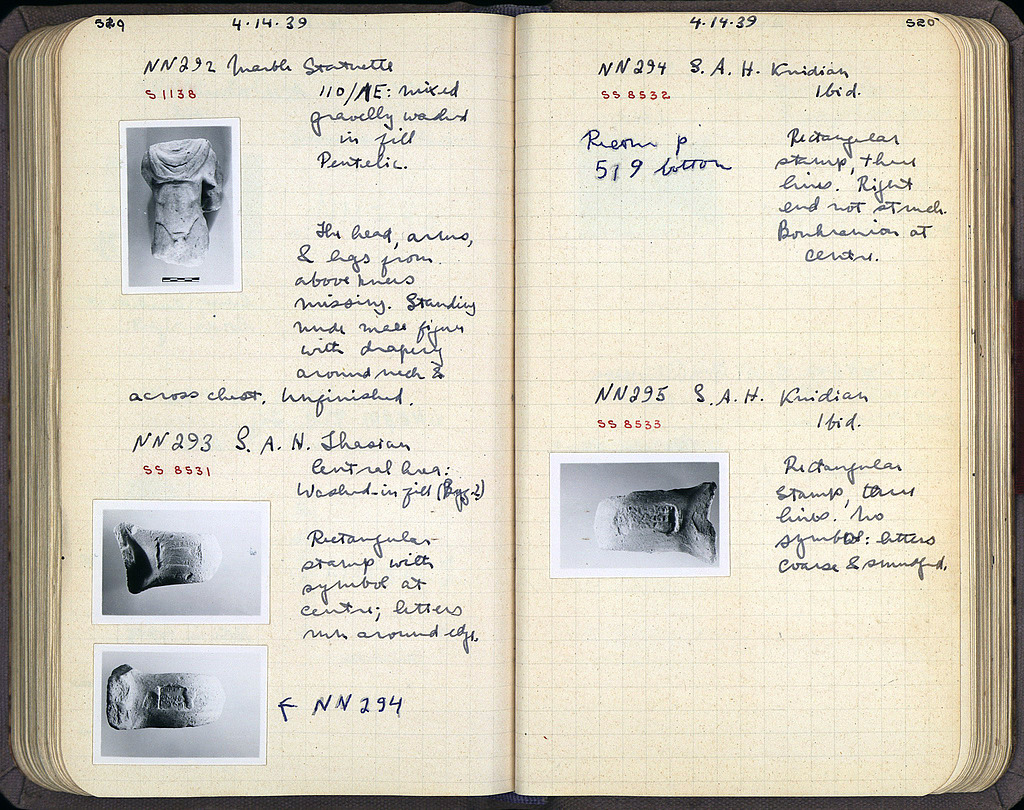 529
4·14·39
NN292 Marble Statuette
S 1138
110/ΛΕ: mixed
gravelly washed
in fill
Pentelic.
The head, arms,
& legs from
above knees
missing. Standing
nude male figure
with drapery
around neck &
across chest. Unfinished.
NN293 S. A. H. Thasian
SS 8531
Central Area:
Washed-in fill
Rectangular
stamp with
symbol at
centre; letters
run around edge.
← NN 294
4·14·39
520
NN294 S. A. H. Knidian
SS 8532
Ibid.
p
519 bottom
Rectangular
stamp, three
lines. Right
end not struck.
Boukranion at
centre.
NN295 S. A. H. Knidian
SS 8533
Ibid.
Rectangular
stamp, three
lines. No
symbol: letters
coarse & smudged.